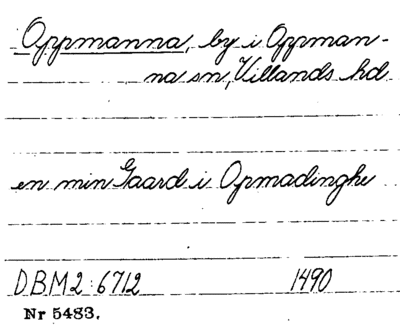 Oppmanna, by i Oppman-
na sn, Villands hd
en min Gaard i Opmadinghe
DBM2:6712 1490
Nr 5483.